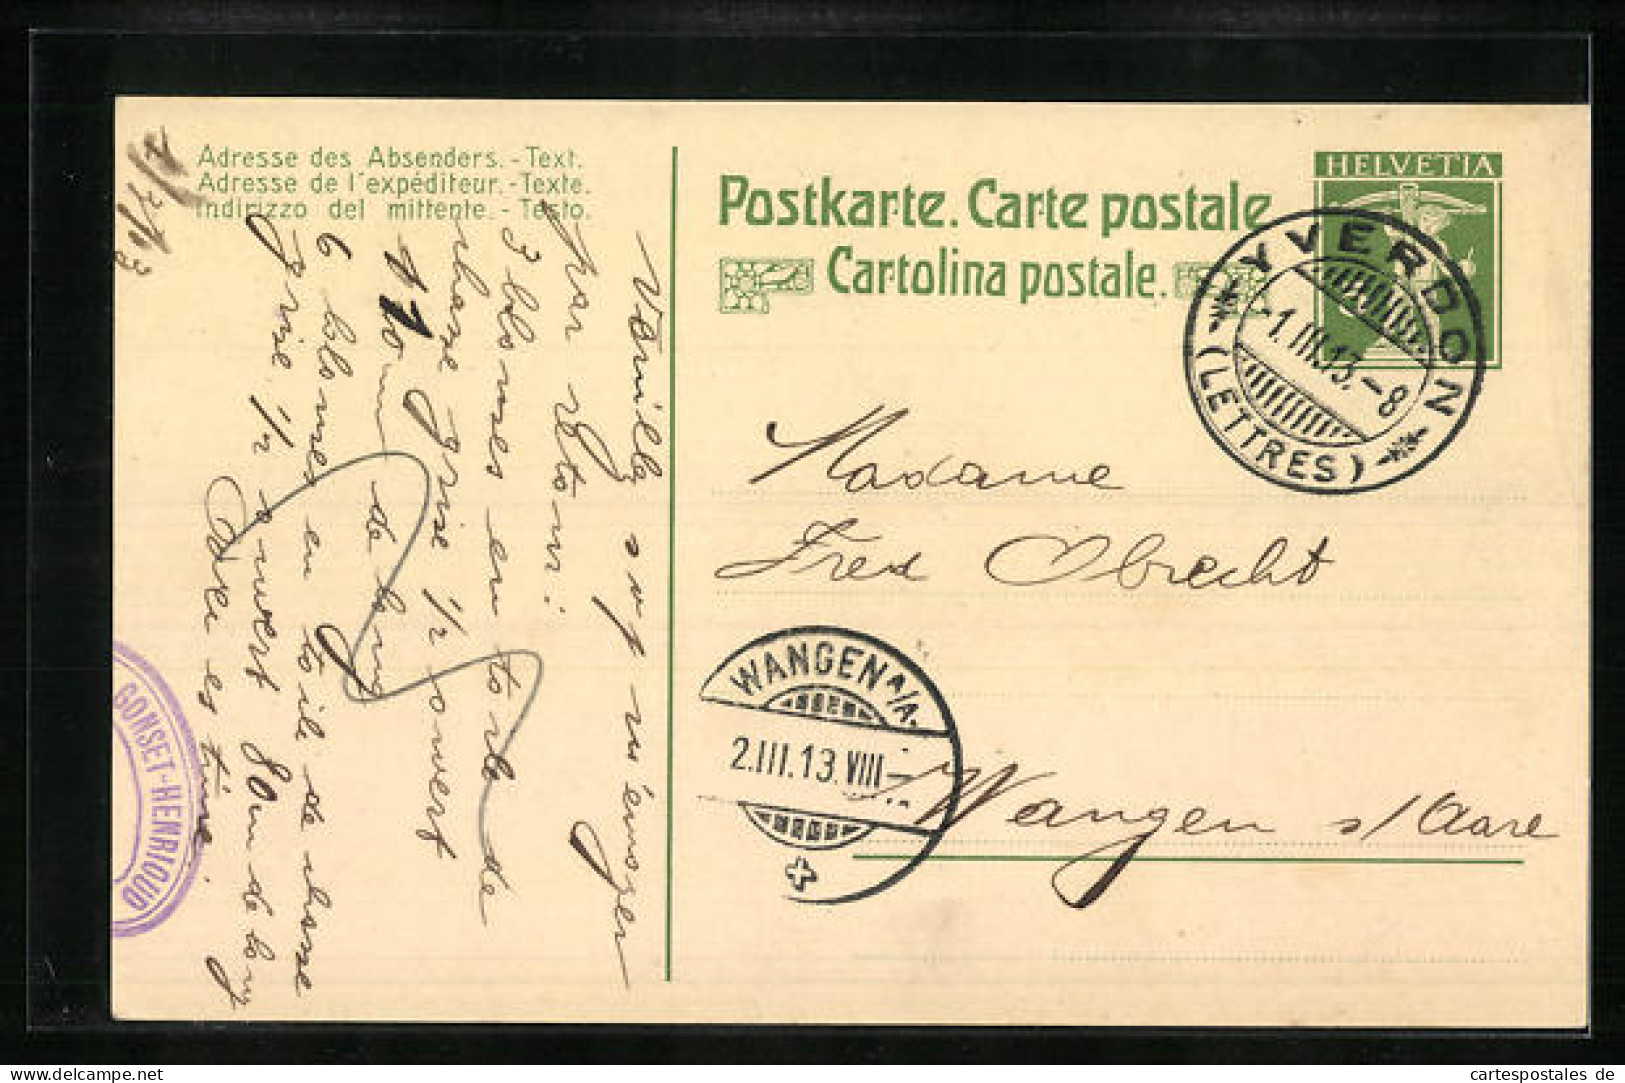 Adresse des Absenders. - Text.
Adresse de l'expéditeur. - Texte.
Indirizzo del mittente. - Testo.
Postkarte. Carte postale
Cartolina postale.
HELVETIA
YVERDON
-1.III.13.-8
(LETTRES)
Madame
Fred Obrecht
Wangen s/Aare
WANGEN A/A.
2.III.13.VIII-
par retour:
3 blouses en toile de
chasse grise 1/2 ouvert
de long
6 blouses en toile de chasse
grise 1/2 ouvert 80cm de long
GONSET-HENRIOUD
cartespostales.de